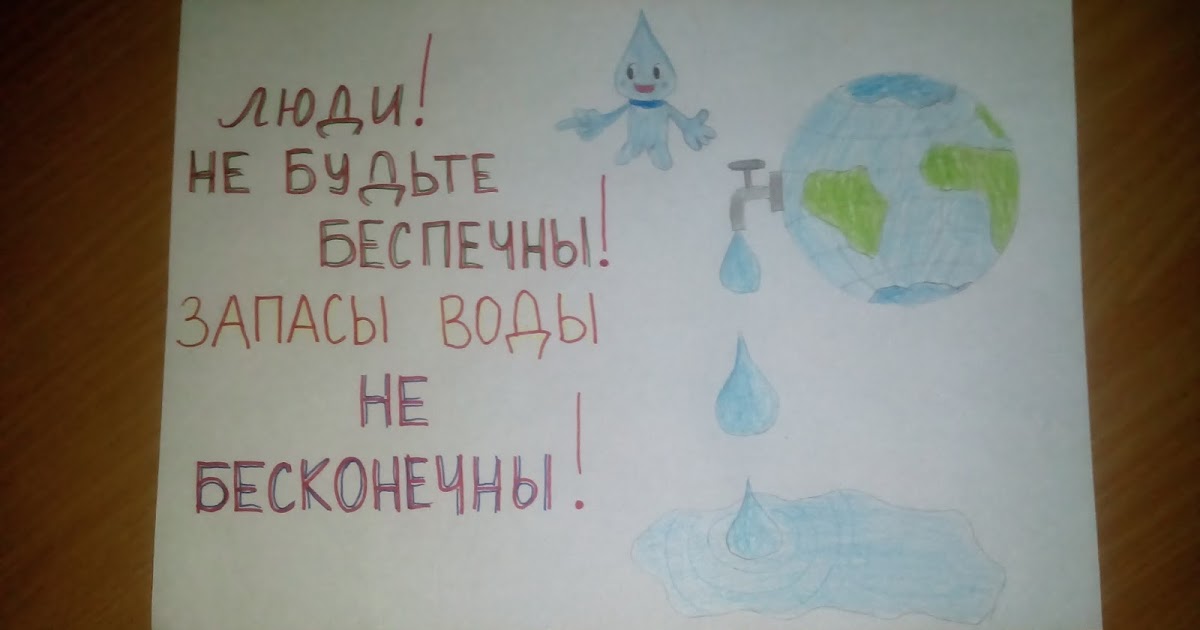 ЛЮДИ!
НЕ БУДЬТЕ
БЕСПЕЧНЫ!
ЗАПАСЫ ВОДЫ
НЕ
БЕСКОНЕЧНЫ!